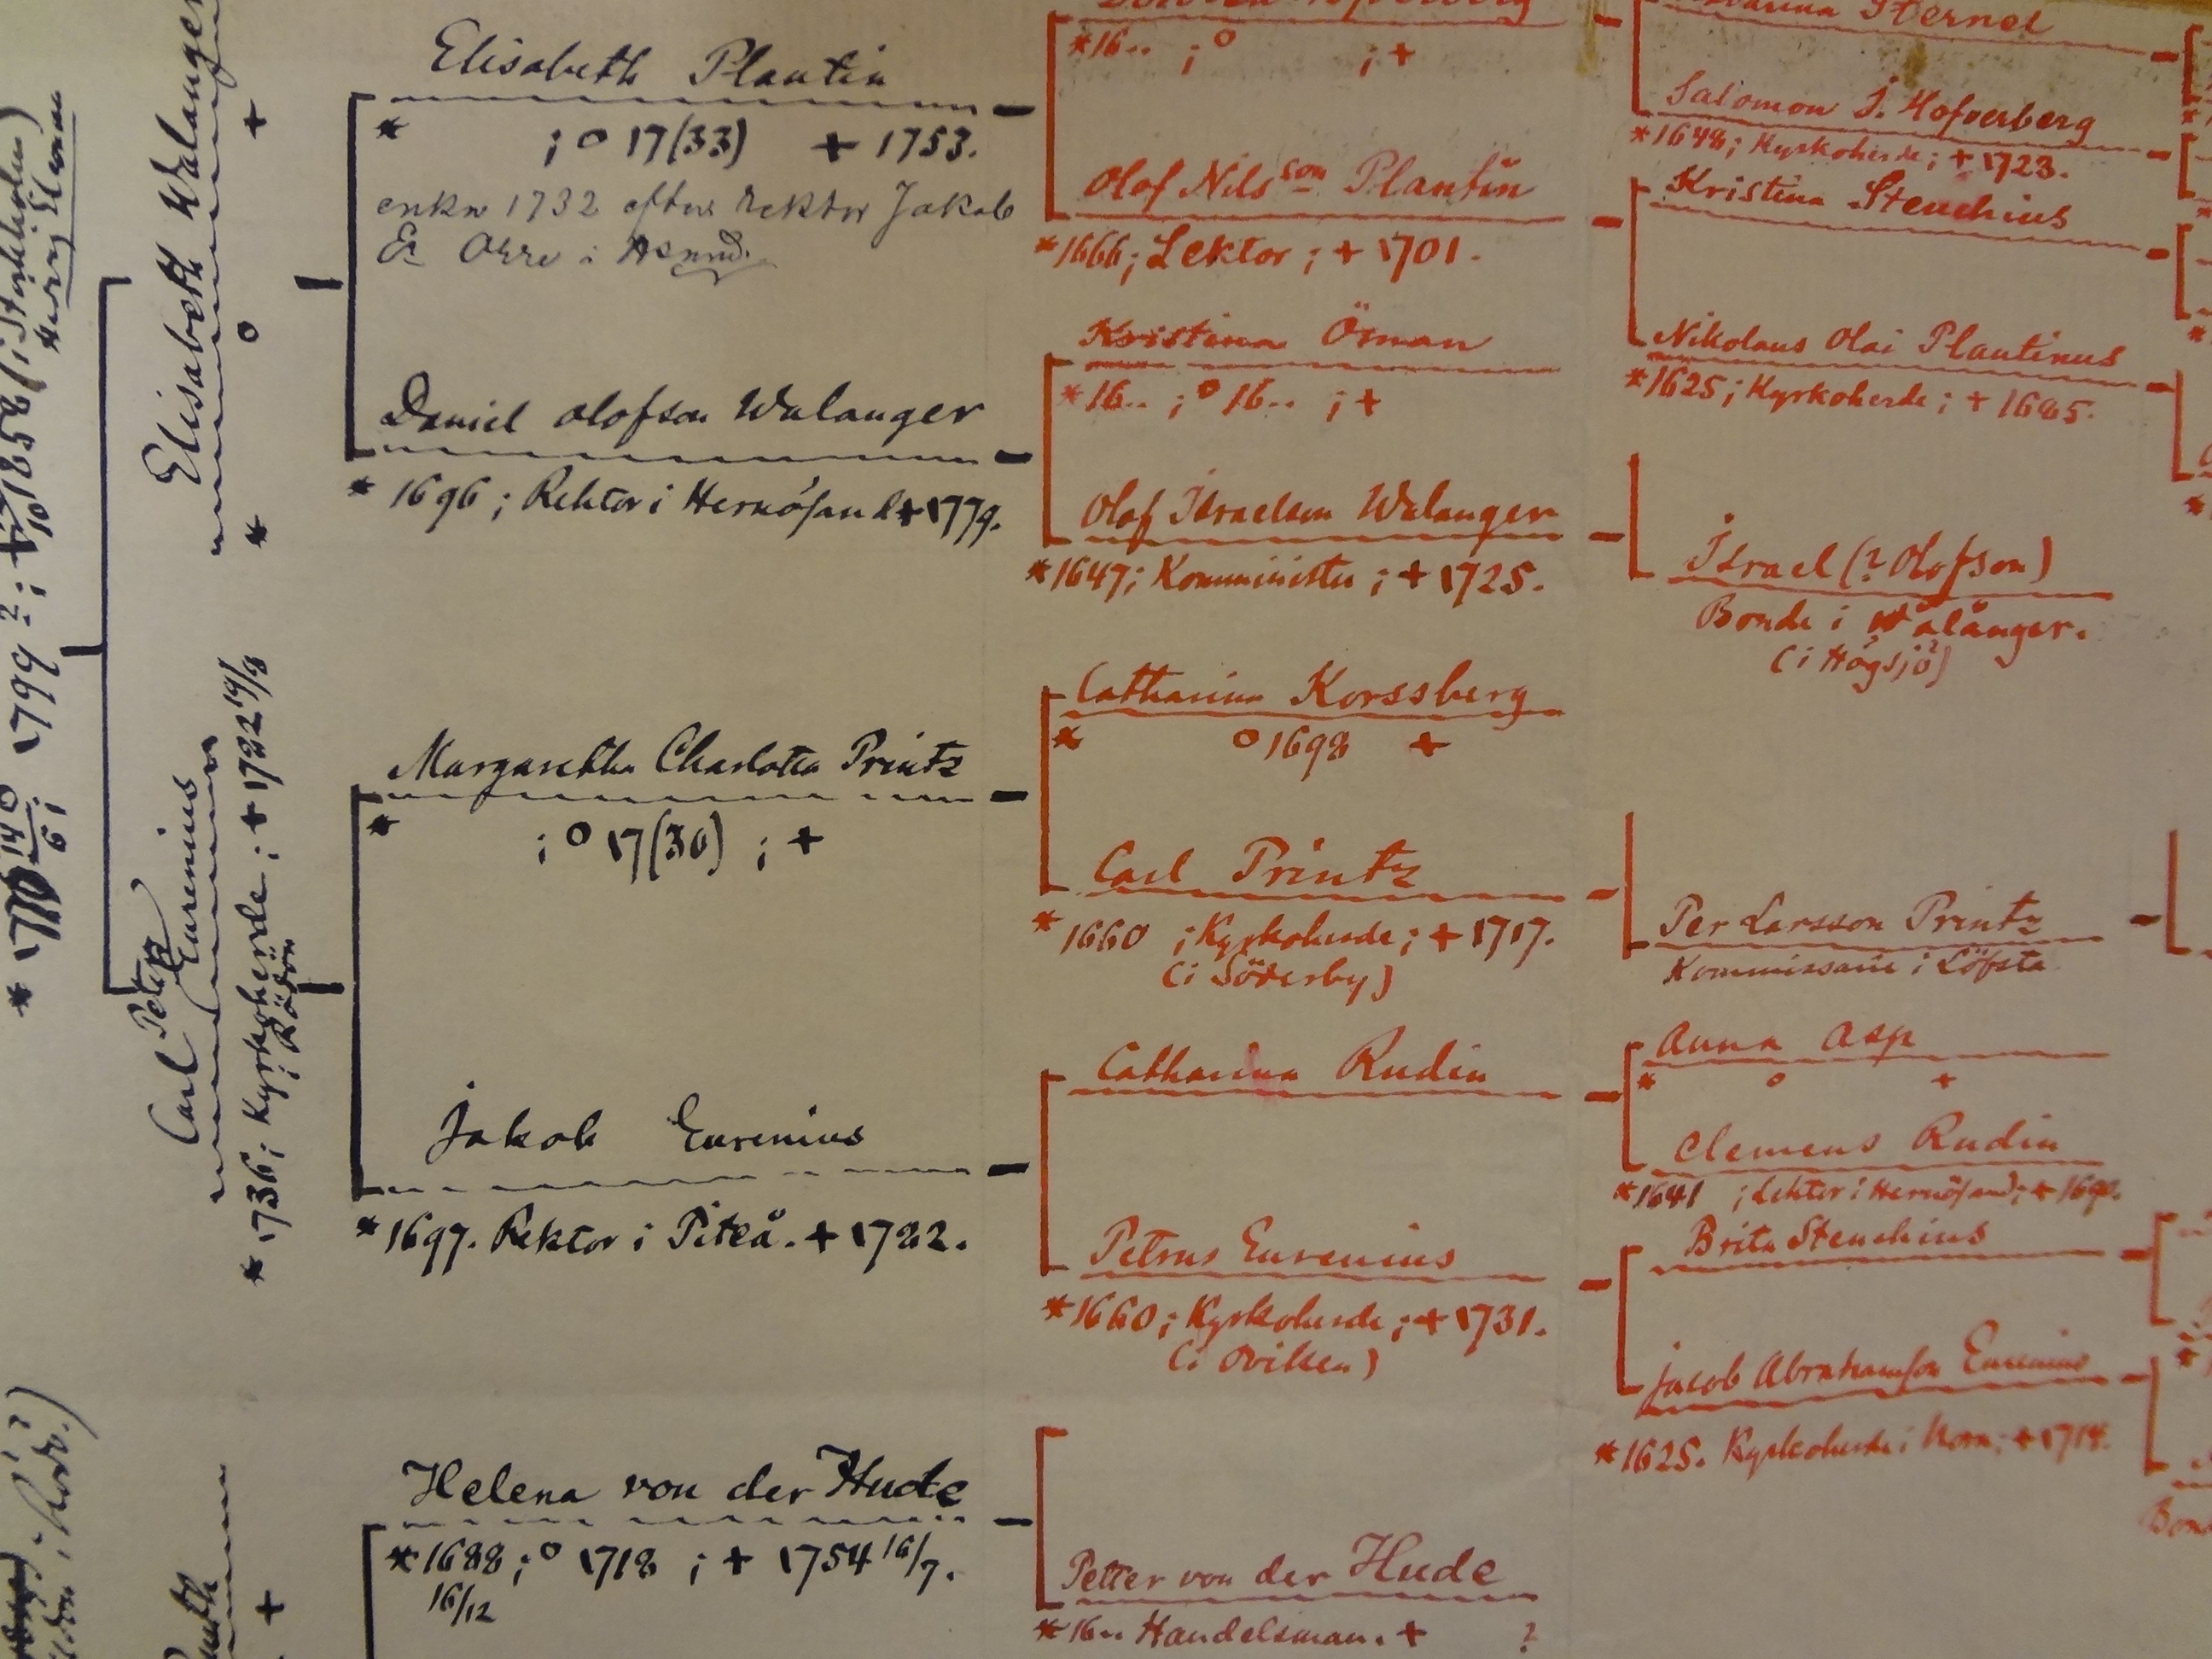 Elisabeth Walanger
* o +
Carl Peter Eurenius
* 1736; Kyrkoherde; + 1782 19/8
i Rödön
Elisabeth Plantin
* ; o 17(33) + 1753.
enka 1732 efter rektor Jakob
Er Orre i
Daniel Olofson Walanger
* 1696; Rektor i Hernösand + 1779.
Margaretha Charlotta Printz
* ; o 17(30) ; +
Jakob Eurenius
* 1697. Rektor i Piteå. + 1782.
Helena von der Hude
* 1688; o 1718 ; + 1754 16/7.
16/12
* 16.. ; o ; +
Olof Nilsson Plantin
* 1666; Lektor; + 1701.
Kristina Öman
* 16.. ; o 16.. ; +
Olof Israelson Walanger
* 1647; Komminister; + 1725.
Catharina Korssberg
* o 1698 +
Carl Printz
* 1660 ; Kyrkoherde; + 1717.
(i Söderby)
Catharina Rudin
Petrus Eurenius
* 1660; Kyrkoherde; + 1731.
(i Oviken)
Petter von der Hude
* 16.. Handelsman. + ?
Sternel
Salomon J. Hofverberg
* 1648; Kyrkoherde; + 1723.
Kristina Steuchius
Nikolaus Olai Plantinus
* 1625; Kyrkoherde; + 1685.
Israel (? Olofson)
Bonde i Wålånger.
(i Högsjö)
Per Larsson Printz
Kommissarie i Löfsta
Anna Asp
* o +
Clemens Rudin
* 1641 ; Lektor i Hernösand; +
Brita Steuchius
Jacob Abrahamson Eurenius
* 1625. Kyrkoherde i Nora; + 1714.